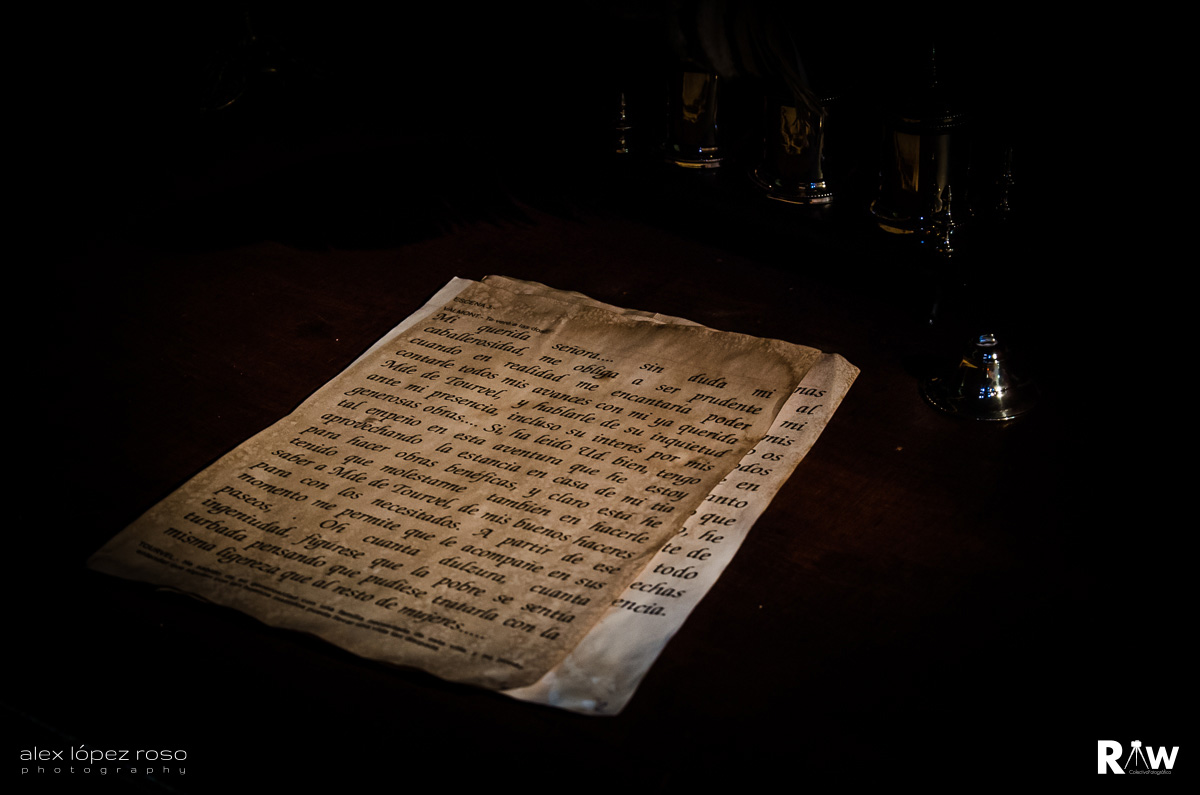 ESCENA 3
VALMONT.-
Mi querida señora.... sin duda mi
caballerosidad, me obliga a ser prudente
cuando en realidad me encantaría poder
contarle todos mis avances con mi ya querida
Mde de Tourvel, y hablarle de su inquietud
ante mi presencia, incluso su interés por mis
generosas obras... Si ha leído Ud. bien, tengo
tal empeño en esta aventura que he estoy
aprovechando la estancia en casa de mi tía
para hacer obras beneficas, y claro está he
tenido que molestarme también en hacerle
saber a Mde de Tourvel, de mis buenos haceres
para con los necesitados. A partir de ese
momento me permite que le acompañe en sus
paseos, Oh cuanta dulzura, cuanta
ingenuidad, figúrese que la pobre se sentía
turbada pensando que pudiese tratarla con la
misma ligereza que al resto de mujeres.....
TOURVEL.-
nas
al
mi
mis
o os
odos
en
anto
que
o, he
te de
todo
echas
encia.
alex lópez roso
photography
RAW
ColectivoFotográfico